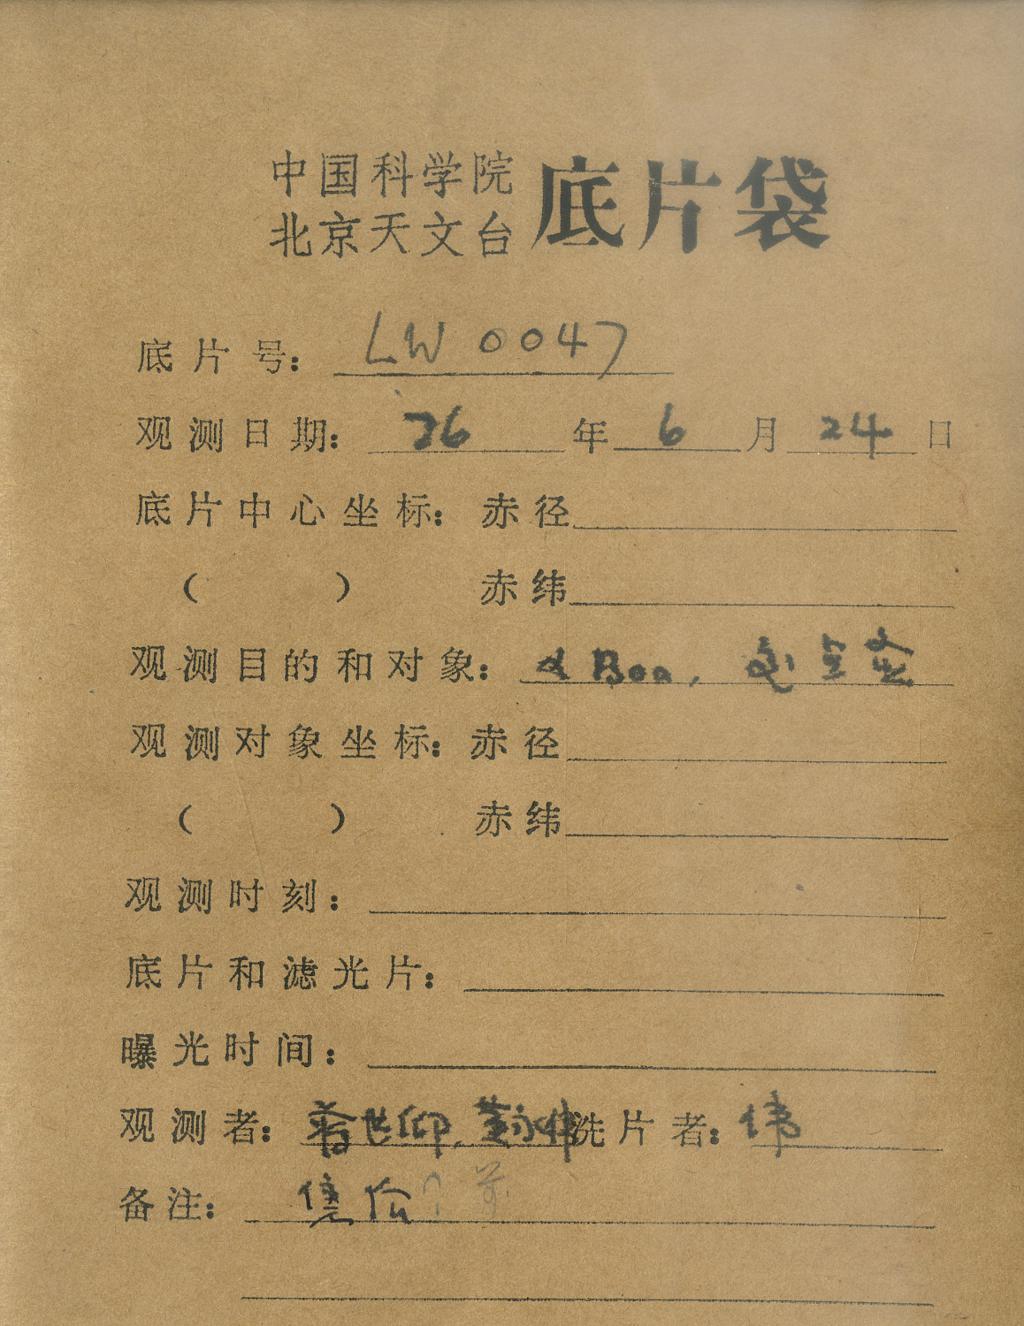 中国科学院
北京天文台 底片袋
底片号： LW 0047
观测日期： 76 年 6 月 24 日
底片中心坐标： 赤径
（ ） 赤纬
观测目的和对象： α Boo,
观测对象坐标： 赤径
（ ） 赤纬
观测时刻：
底片和滤光片：
曝光时间：
观测者： 蒋世仰, 黄永伟 洗片者： 伟
备注：